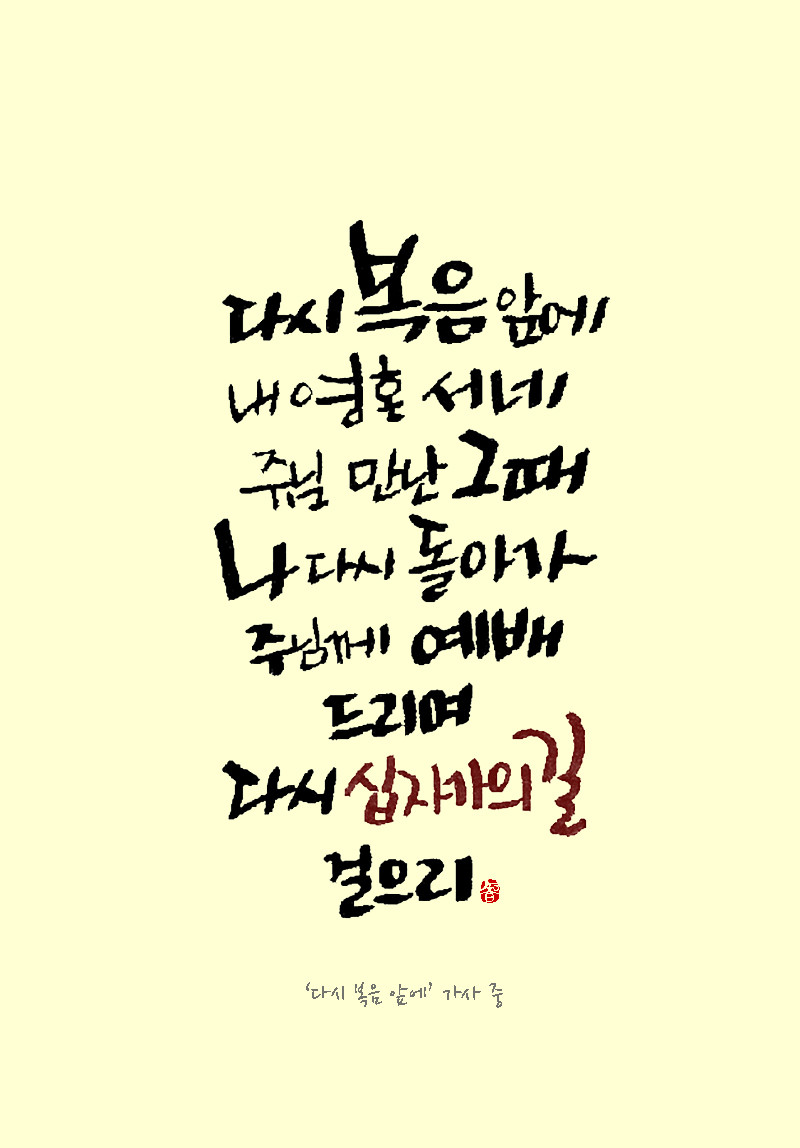 다시 복음 앞에
내 영혼 서네
주님 만난 그때
나 다시 돌아가
주님께 예배
드리며
다시 십자가의 길
걸으리
智
'다시 복음 앞에' 가사 중